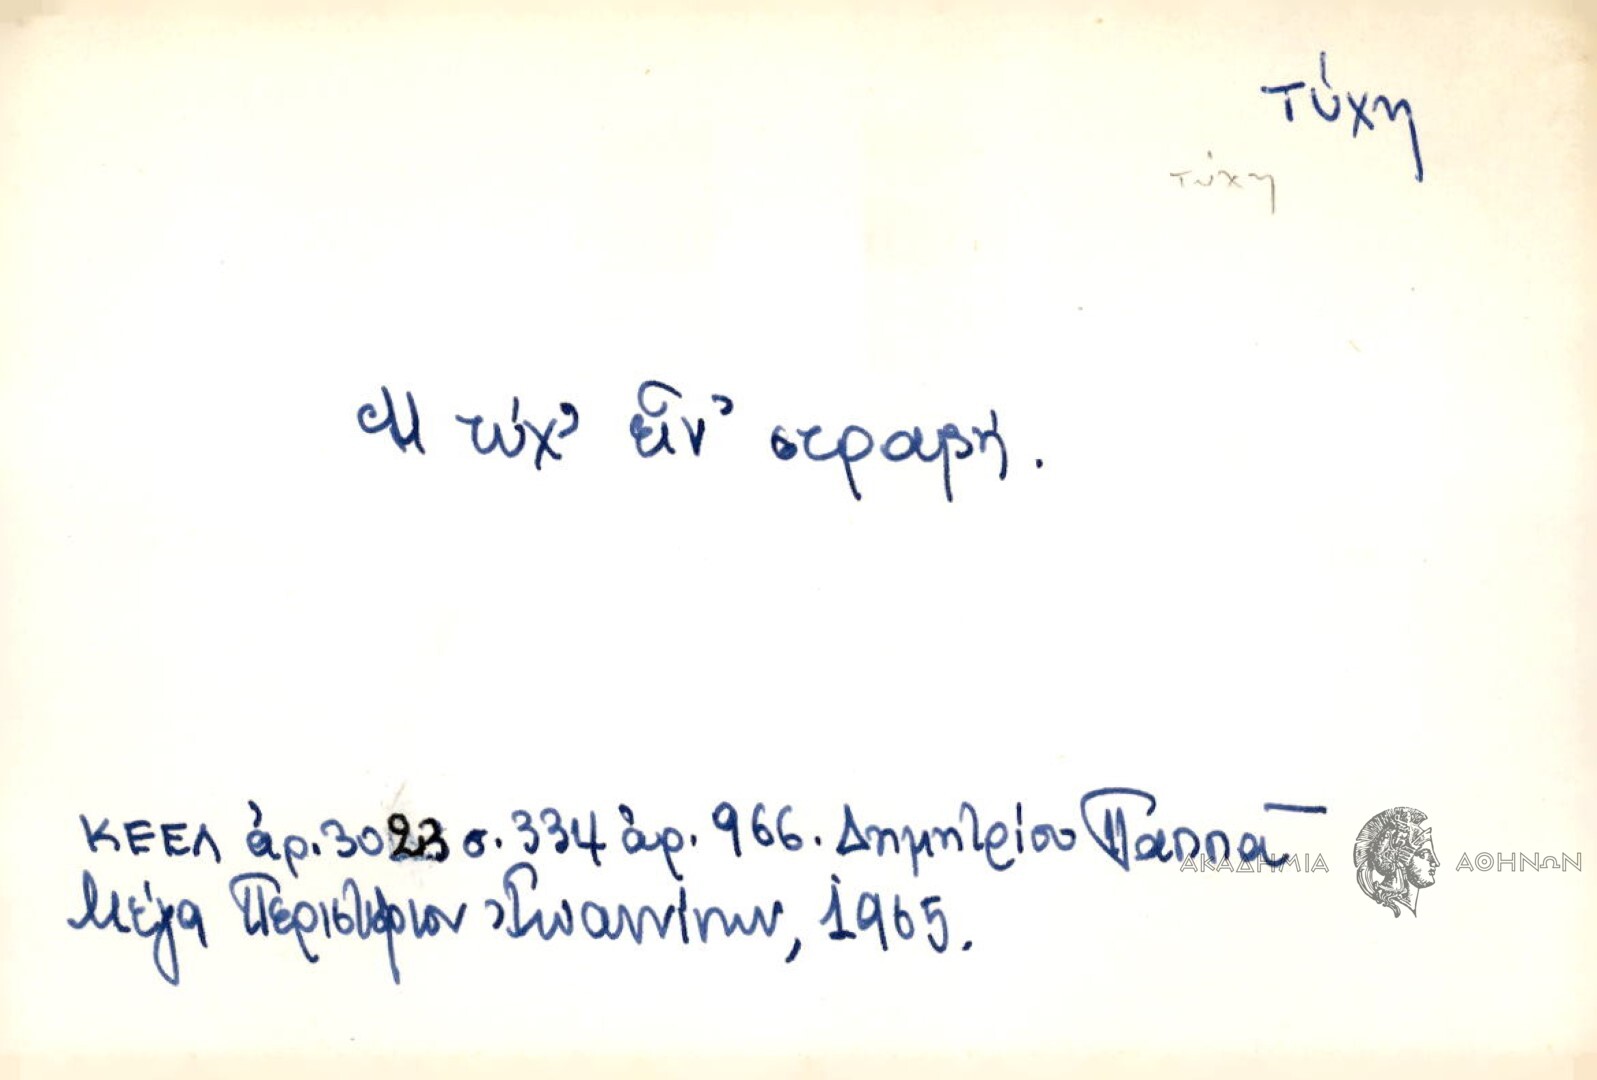 τύχη
τύχη
Η τύχ' εἶν' στραβή.
ΚΕΕΛ ἀρ. 3023 σ. 334 ἀρ. 966. Δημητρίου Πάππα
ΑΚΑΔΗΜΙΑ ΑΘΗΝΩΝ
Μέγα Περιστέριον Ἰωαννίνων, 1965.